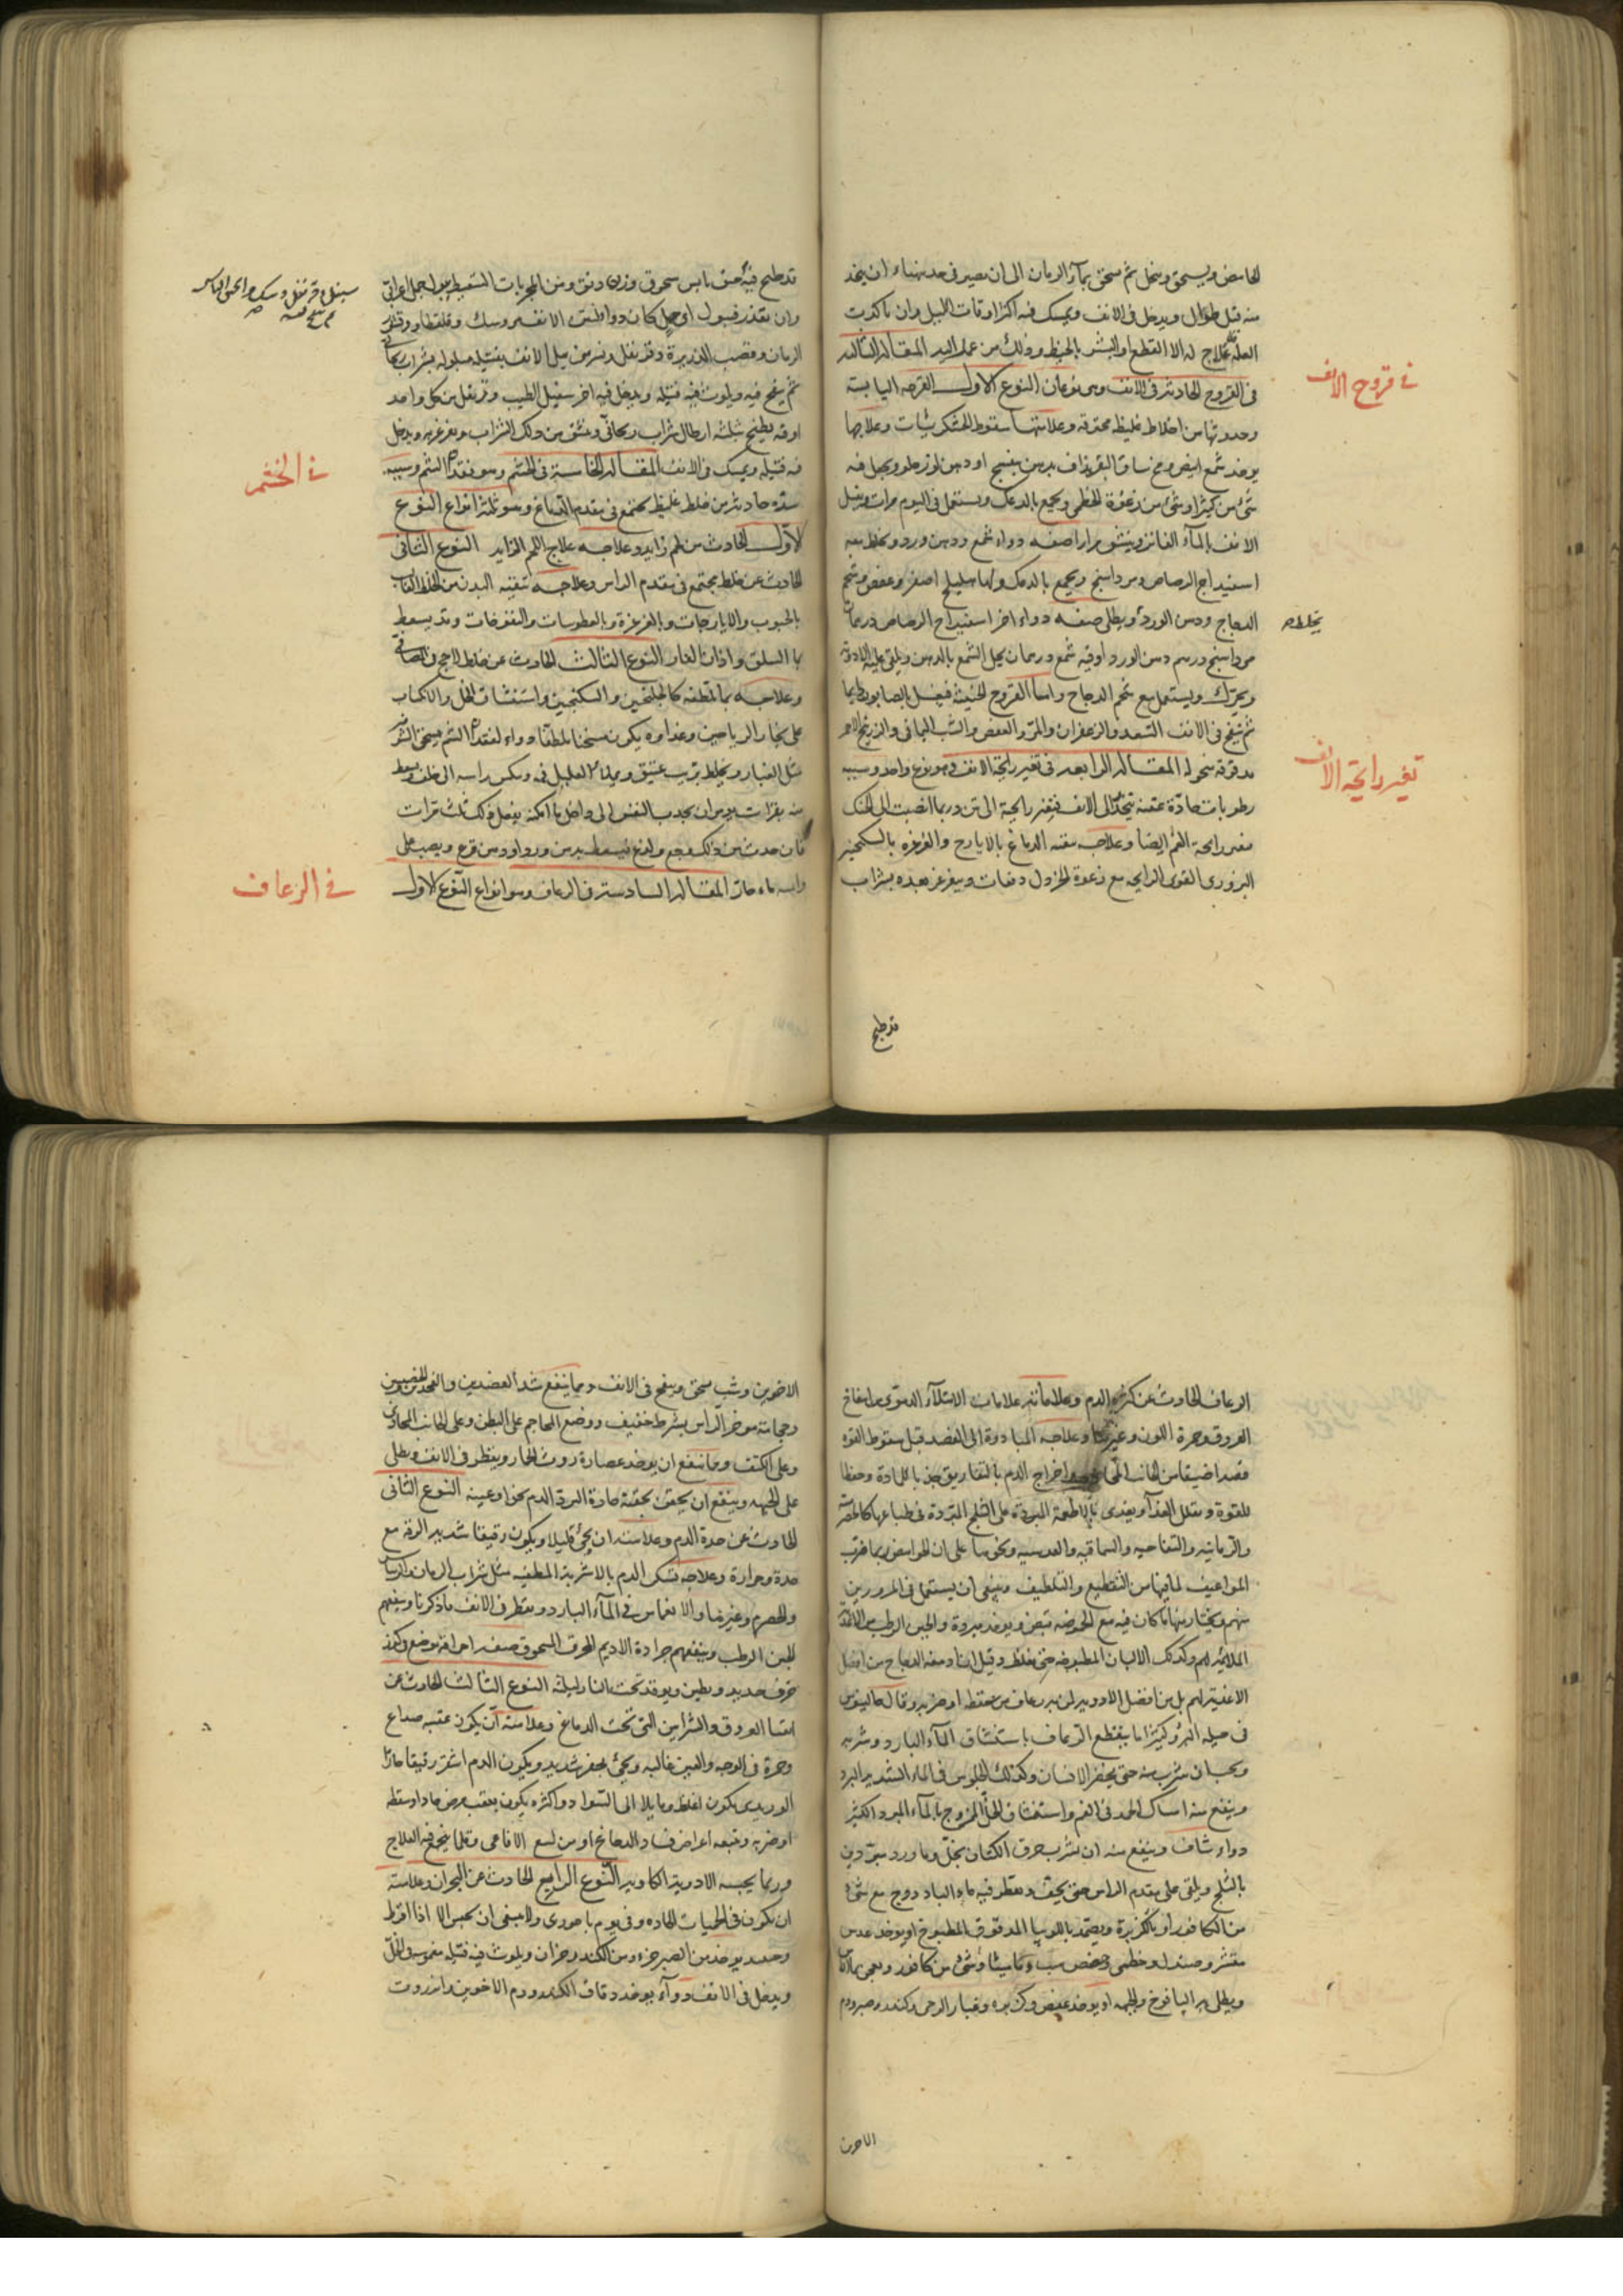 الحامض ويسحق وينخل ثم يسحق بماء الرمان الى ان يصير في حد يتهيأ ان يتخذ
منه فتل طوال ويدخل في الانف ويمسك فيه اكثر اوقات الليل وان تأكدت
العلة فلا علاج له الا القطع او البشر بالخيط وذلك من عمل اليد المقالة الثالثة
في القروح الحادثة في الانف وهي نوعان النوع الاول القرحة اليابسة
وحدوثها من اخلاط غليظة محترقة وعلامتها سقوط الخشكريشات وعلاجها
يوخذ شمع ابيض ومخ ساق البقر يذاف بدهن بنفسج او دهن لوز حلو ويجعل فيه
شئ من كثيرا وشئ من رغوة الخطمي ويجمع بالدعك ويستعمل في اليوم مرات ويغسل
الانف بالماء الفاتر وينشق مرارا صفة دواء شمع ودهن ورد ويخلط معه
اسفيداج الرصاص ومرداسنج ويجمع بالدعك ولها هليلج اصفر وعفص وشحم
الدجاج ودهن الورد ويطلى صفة دواء اخر اسفيداج الرصاص درهمان
مرداسنج درهم دهن الورد اوقية شمع درهمان يحل الشمع بالدهن ويلقى عليه الادوية
ويحرك ويستعمل مع شحم الدجاج واما القروح الخبيثة فيغسل بالصابون دايما
ثم ينفخ في الانف السعد والزعفران والمر والعفص والشب اليماني والزرنيخ الاحمر
مدقوقة منخولة المقالة الرابعة في تغير رايحة الانف وهو نوع واحد وسببه
رطوبات حادة عفنة تنجذب الى الانف فتغير رايحته الى نتن وربما انصبت الى الحنك
فتغير رايحة الفم ايضا وعلاجه تنقية الدماغ بالايارج والغرغرة بالسكنجبين
البزوري القوى الرايحة مع رغوة الخردل دفعات ويغرغر بعده بشراب
في قروح الانف
تغير رايحة الانف
قد طبخ
قد طبخ فيه حبق يابس مسحوق وزن دانق ومن المجربات السعيط ببول جمل اعرابي
وان تعذر فبول اي جمل كان دواء لنتن الانف مر وسك وقلقطار وقشر
الرمان وقصب الذريرة وقرنفل ونسرين يبل الانف بفتيلة مبلولة بشراب ريحاني
ثم ينفخ فيه ويلوث فيه فتيلة ويدخل فيه اخر سنبل الطيب وقرنفل من كل واحد
اوقية يطبخ بثلثة ارطال شراب ريحاني وينشق من ذلك الشراب ويغرغر به ويدخل
فيه فتيلة ويمسك في الانف المقالة الخامسة في الخشم وهو فقد الشم وسببه
سدة حادثة من خلط غليظ يجتمع في مقدم الدماغ وهو ثلثة انواع النوع
الاول الحادث من لحم زايد وعلاجه علاج اللحم الزايد النوع الثاني
الحادث عن خلط يجتمع في مقدم الراس وعلاجه تنقية البدن من الخلط الغالب
بالحبوب والايارجات وبالغرغرة وبالعطوسات والنفوخات وقد يسعط
بماء السلق واذان الفار النوع الثالث الحادث عن خلط لزج في المصافي
وعلاجه بما يلطفه كالجلنجبين والسكنجبين واستنشاق الخل والاكباب
على بخار الرياحين وغذاوه يكون مسخنا ملطفا دواء لفقد الشم يسحق الشونيز
مثل الغبار ويخلط بزيت عتيق ويملا العليل فمه وينكس راسه الى خلف ويسعط
منه بقطرات ويومر ان يجذب النفس الى داخل ما امكنه يفعل ذلك ثلث مرات
فان حدث من ذلك وجع ولذع فيسعط بدهن ورد او دهن قرع ويصب على
راسه ماء حار المقالة السادسة في الرعاف وهو انواع النوع الاول
في الخشم
في الرعاف
الرعاف الحادث عن كثرة الدم وعلاماته علامات الامتلاء الدموي من انتفاخ
العروق وحمرة اللون وغيرها وعلاجه المبادرة الى الفصد قبل سقوط القوة
فصدا ضيقا من الجانب المحاذي واخراج الدم بالتفاريق جذبا للمادة وحفظا
للقوة وتقلل الغذاء ويغذى بالاطعمة المبردة على الثلج المبردة في طباعها كالحصرمية
والرمانية والتفاحية والسماقية والعدسية ونحوها على ان الحوامض ربما ضرت
المواعيف لما فيها من التقطيع والتلطيف وينبغي ان يستعمل في المرورين
منهم ويختار منها ما كان فيه مع الحموضة قبض ويوخذ مبردة والجبن الرطب من الاغذية
الملايمة لهم وكذلك الالبان المطبوخة حتى تغلظ وقيل ان ادمغة الدجاج من افضل
الاغذية لهم بل من افضل الادوية لمن به رعاف من سقطة او ضربة وقال جالينوس
في حيلة البرؤ كثيرا ما ينقطع الرعاف باستنشاق الماء البارد وشربه
ويجب ان يشرب منه حتى يخصر الانسان وكذلك الجلوس في الماء الشديد البرد
وينفع منه امساك الجمد في الفم واستنشاق الخل الممزوج بالماء المبرد الكثير
دواء شاف وينفع منه ان يشرب خرق الكتان بخل وماورد مبردين
بالثلج ويلقى على مقدم الراس حتى يخف ويقطر فيه ماء الباذروج مع شئ
من الكافور او بالكزبرة ويضمد باللوبيا المدقوق المطبوخ او يوخذ عدس
مقشر وصندل وخطمى وحضض وماميثا وشئ من كافور ويعجن بماء الاس
ويطلى به اليافوخ والجبهة او يوخذ عفص وكزبرة وغبار الرحى وكندر وصبر ودم
الاخوين
الاخوين وشب يسحق وينفخ في الانف ومما ينفع شد العضدين والفخدين والخصيتين
وحجامة موخر الراس بشرط خفيف ووضع المحاجم على البطن وعلى الجانب المحاذي
وعلى الكتف ومما ينفع ان يوخذ عصارة روث الحمار ويقطر في الانف ويطلى
على الجبهة وينفع ان يحقن بحقنة حادة لترد الدم نحو اوعيته النوع الثاني
الحادث عن حدة الدم وعلامته ان يجئ قليلا ويكون رقيقا شديد الرقة مع
حدة وحرارة وعلاجه تسكين الدم بالاشربة المطفية مثل شراب الرمان والريباس
والحصرم وغيرها والانغماس في الماء البارد ويقطر في الانف ما ذكرنا وينفعهم
الجبن الرطب وينفعهم جرادة الاديم المحرق المسحوق صفة احراقه يوضع في كوز
خزف جديد ويطين ويوقد تحته النار ليلة النوع الثالث الحادث عن
انتفاخ العروق والشرايين التي تحت الدماغ وعلامته ان يكون عقيب صداع
وحمرة في الوجه والعين غالبه ويجئ بحفز شديد ويكون الدم اشقر رقيقا حارا
الوريدى يكون اغلظ ومايلا الى السواد واكثره يكون بعقب مرض حاد او سقطة
او ضربة وتتبعه اعراض فساد الدماغ او من لسع الافاعى وقلما ينجح فيه العلاج
وربما يحبسه الادوية الكاوية النوع الرابع الحادث عن البحران وعلامته
ان يكون في الحميات الحادة وفي يوم باحورى ولا ينبغى ان يحبس الا اذا افرط
وحده يوخذ من الصبر جزء ومن الكندر جزان ويلوث فيه فتيلة مغموسة في الخل
ويدخل في الانف دواء يوخذ دقاق الكندر ودم الاخوين وانزروت